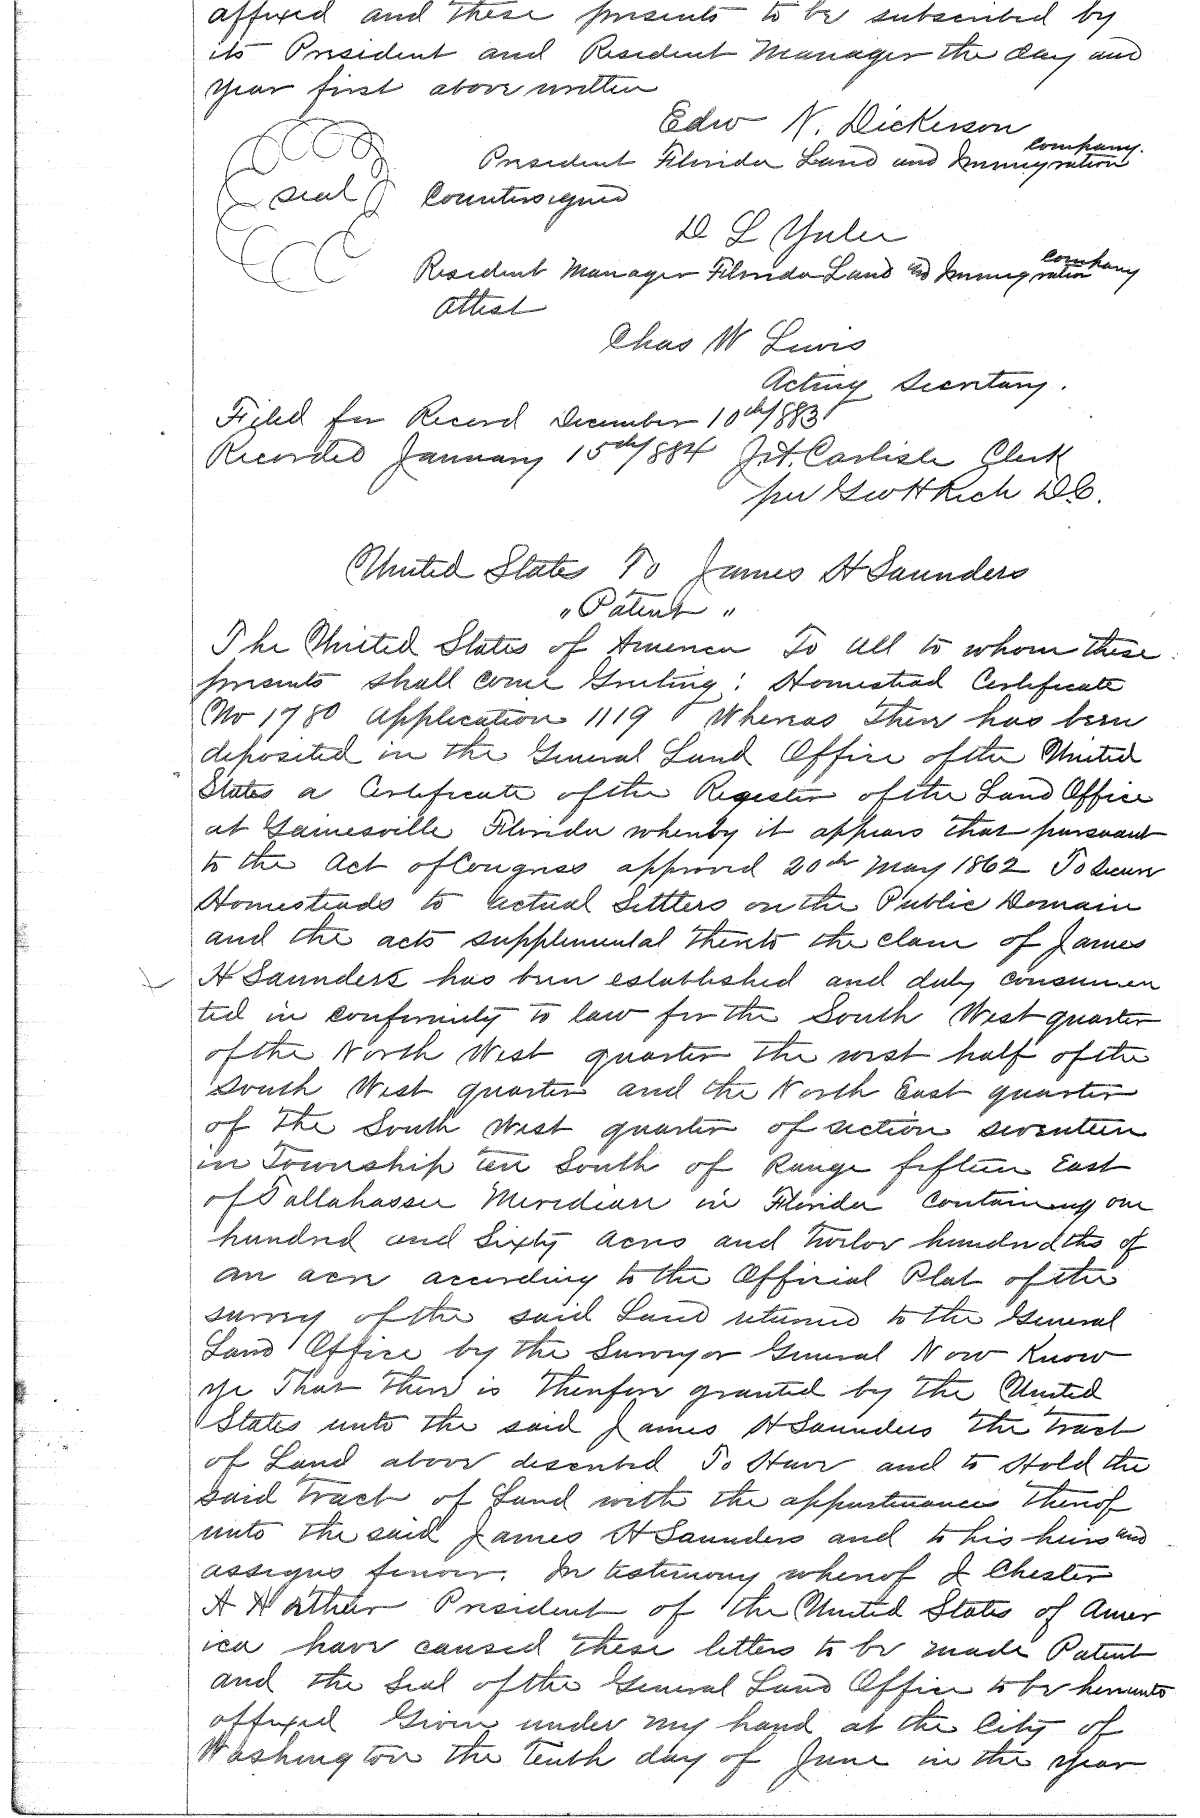 affixed and these presents to be subscribed by
its President and Resident Manager the day and
year first above written
Edw N. Dickerson
President Florida Land and Immigration Company.
seal Countersigned
D L Yulee
Resident Manager Florida Land and Immigration Company
Attest
Chas W Lewis
Acting Secretary.
Filed for Record December 10th/883
Recorded January 15th/884 J.A. Carlisle Clerk
per Geo H Rich D.C.
United States To James H Saunders
"Patent"
The United States of America To all to whom these
presents shall come Greeting: Homestead Certificate
No 1780 Application 1119 Whereas there has been
deposited in the General Land Office of the United
States a Certificate of the Register of the Land Office
at Gainesville Florida whereby it appears that pursuant
to the Act of Congress approved 20th May 1862 To Secure
Homesteads to actual Settlers on the Public Domain
and the acts supplemental thereto the claim of James
H Saunders has been established and duly consumen
ted in conformity to law for the South West quarter
of the North West quarter the west half of the
South West quarter and the North East quarter
of the South West quarter of section seventeen
in Township ten South of Range fifteen East
of Tallahassee Meridian in Florida Containing one
hundred and Sixty acres and twelve hundredths of
an acre according to the Official Plat of the
survey of the said Land returned to the General
Land Office by the Surveyor General Now Know
ye That there is therefore granted by the United
States unto the said James H Saunders the tract
of Land above described To Have and to Hold the
said tract of Land with the appurtenances thereof
unto the said James H Saunders and to his heirs and
assigns forever. In testimony whereof I Chester
A Arthur President of the United States of Amer
ica have caused these letters to be made Patent
and the Seal of the General Land Office to be hereunto
affixed Given under my hand at the City of
Washington the tenth day of June in the year